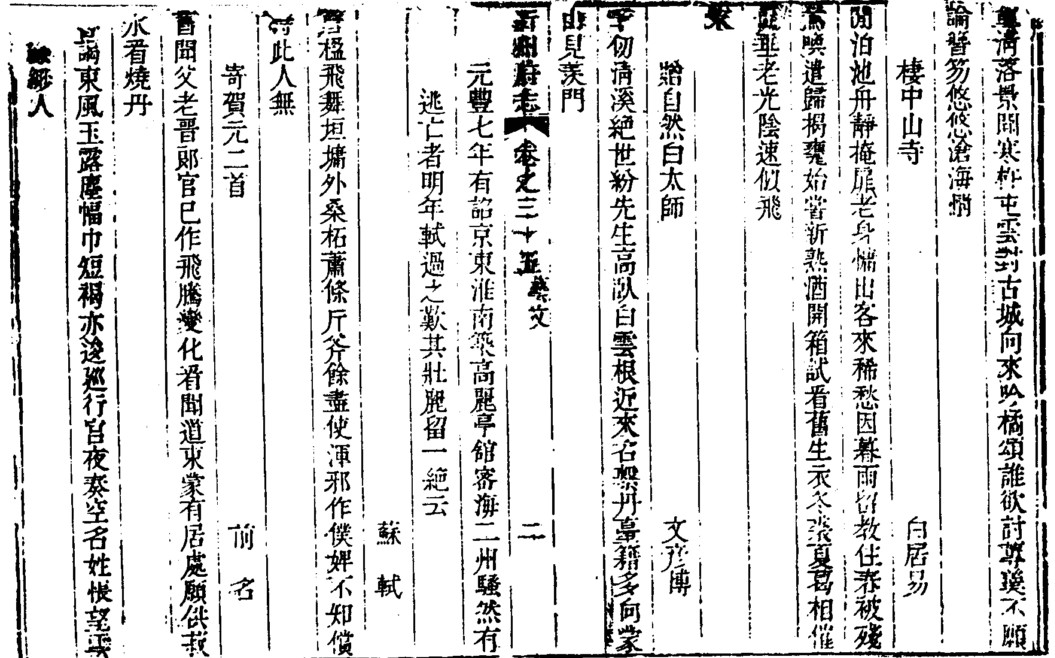 清落景聞寒杵屯雲對古城向來吟橘頌誰欲討蓴羹不願
論簪笏悠悠滄海情
棲中山寺　白居易
閒泊池舟靜掩扉老身慵出客來稀愁因暮雨留教住春被殘
鶯喚遣歸揭甕始嘗新熟酒開箱試看舊生衣冬裘夏葛相催
促垂老光陰速似飛
贈自然白太師　文彦博
仞清溪絕世紛先生高臥白雲根近來名繫丹臺籍多向蒙
山見羨門
沂州府志　卷之三十五　藝文　二
元豐七年有詔京東淮南築高麗亭館密海二州騷然有
逃亡者明年軾過之歎其壯麗留一絕云
蘇軾
楹飛舞垣墉外桑柘蕭條斤斧餘盡使渾邪作僕婢不知償
得此人無
寄賀元二首　前名
舊聞父老晉郞官已作飛騰變化看聞道東蒙有居處願供
水看燒丹
謁東風玉露塵幅巾短褐亦逡巡行宫夜奏空名姓悵望雲
人